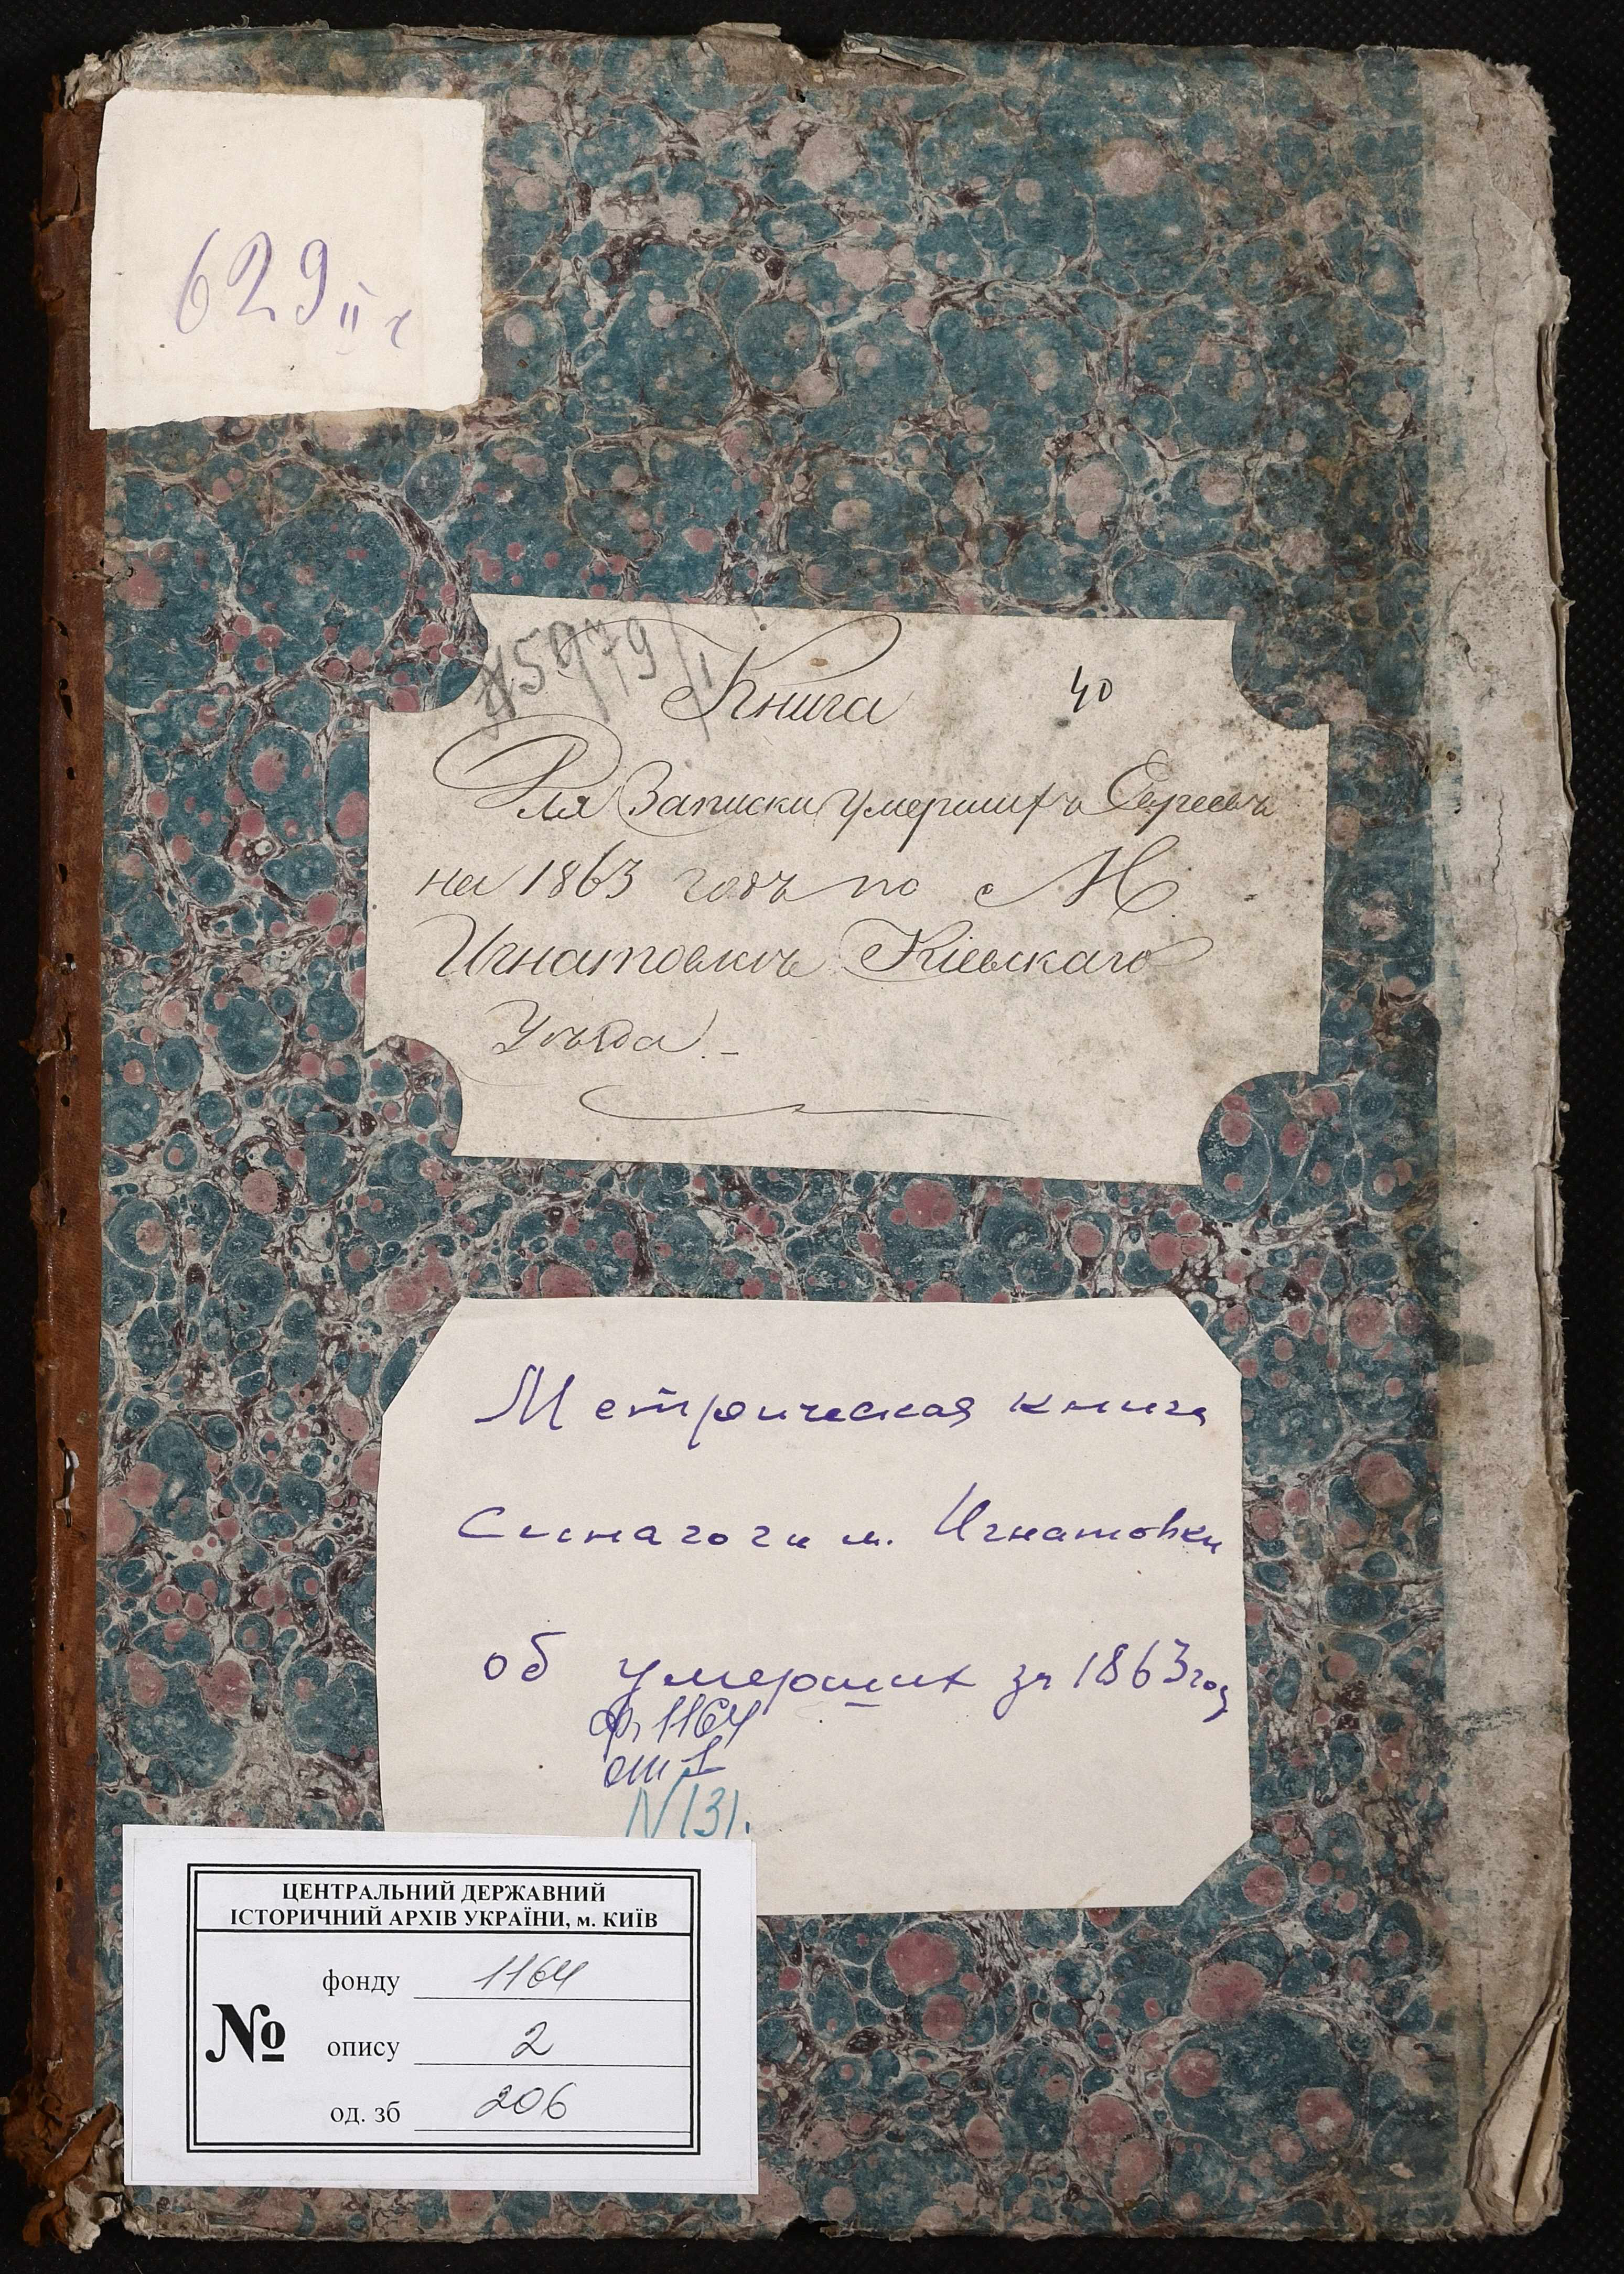 629 II ч
45979/1
Книга 40
Для Записки умершихъ Евреевъ
на 1863 годъ по М
Игнатовкѣ Кіевскаго
Уѣзда. –
Метрическая книга
Синагоги м. Игнатовки
об умерших за 1863 год
ф 1164
оп 1
N 131.
ЦЕНТРАЛЬНИЙ ДЕРЖАВНИЙ
ІСТОРИЧНИЙ АРХІВ УКРАЇНИ, м. КИЇВ
фонду 1164
№ опису 2
од. зб 206